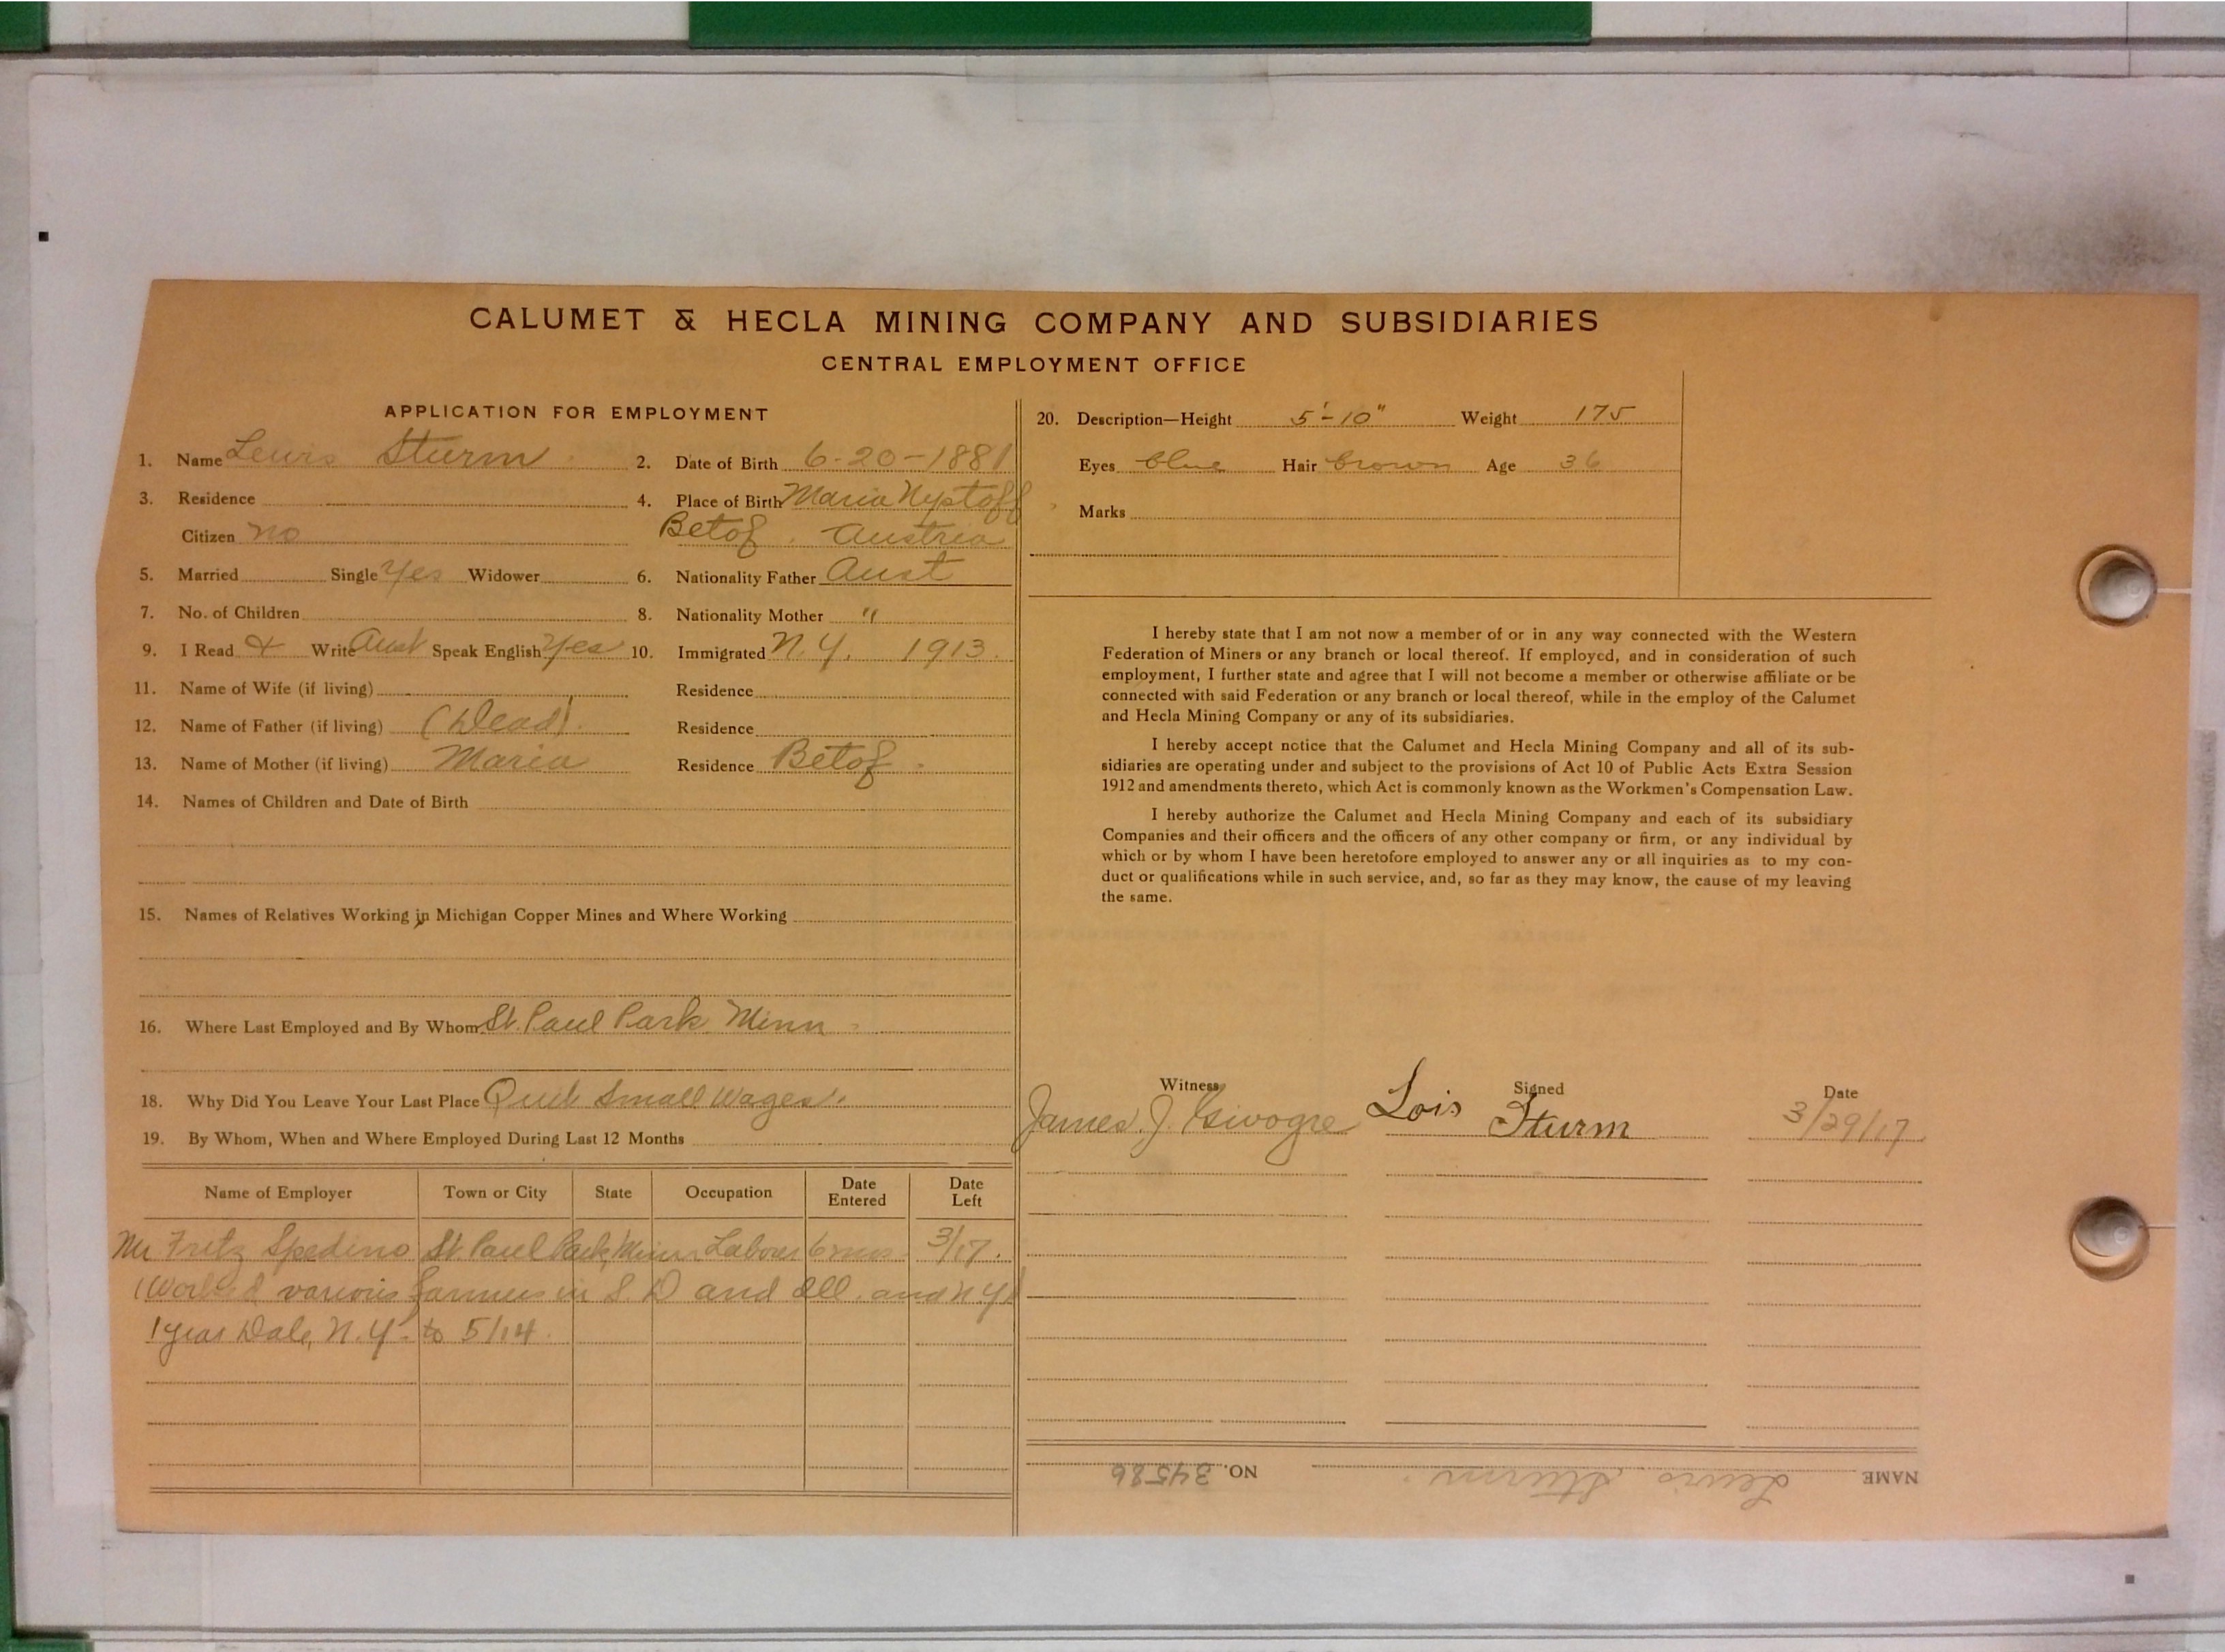 CALUMET & HECLA MINING COMPANY AND SUBSIDIARIES
CENTRAL EMPLOYMENT OFFICE
APPLICATION FOR EMPLOYMENT
1. Name Lewis Sturm 2. Date of Birth 6-20-1881
3. Residence 4. Place of Birth Maria Nystoff
Citizen no Betof. Austria
5. Married Single Yes Widower 6. Nationality Father Aust
7. No. of Children 8. Nationality Mother "
9. I Read & Write Aust Speak English Yes 10. Immigrated N.Y. 1913.
11. Name of Wife (if living) Residence
12. Name of Father (if living) (Dead). Residence
13. Name of Mother (if living) Maria Residence Betof.
14. Names of Children and Date of Birth
15. Names of Relatives Working in Michigan Copper Mines and Where Working
16. Where Last Employed and By Whom St. Paul Park Minn
18. Why Did You Leave Your Last Place Quit Small Wages.
19. By Whom, When and Where Employed During Last 12 Months
Name of Employer Town or City State Occupation Date Entered Date Left
Mr Fritz Spedino St. Paul Park, Minn Labour 6 mos 3/17.
(Worked various farmers in S. D and Ill. and N.Y)
1 year Dale, N.Y. to 5/14.
20. Description—Height 5'-10" Weight 175
Eyes blue Hair brown Age 36
Marks
I hereby state that I am not now a member of or in any way connected with the Western
Federation of Miners or any branch or local thereof. If employed, and in consideration of such
employment, I further state and agree that I will not become a member or otherwise affiliate or be
connected with said Federation or any branch or local thereof, while in the employ of the Calumet
and Hecla Mining Company or any of its subsidiaries.
I hereby accept notice that the Calumet and Hecla Mining Company and all of its sub-
sidiaries are operating under and subject to the provisions of Act 10 of Public Acts Extra Session
1912 and amendments thereto, which Act is commonly known as the Workmen's Compensation Law.
I hereby authorize the Calumet and Hecla Mining Company and each of its subsidiary
Companies and their officers and the officers of any other company or firm, or any individual by
which or by whom I have been heretofore employed to answer any or all inquiries as to my con-
duct or qualifications while in such service, and, so far as they may know, the cause of my leaving
the same.
Witness Signed Date
James J. Lois Sturm 3/29/17
NAME Lewis Sturm. NO. 34586